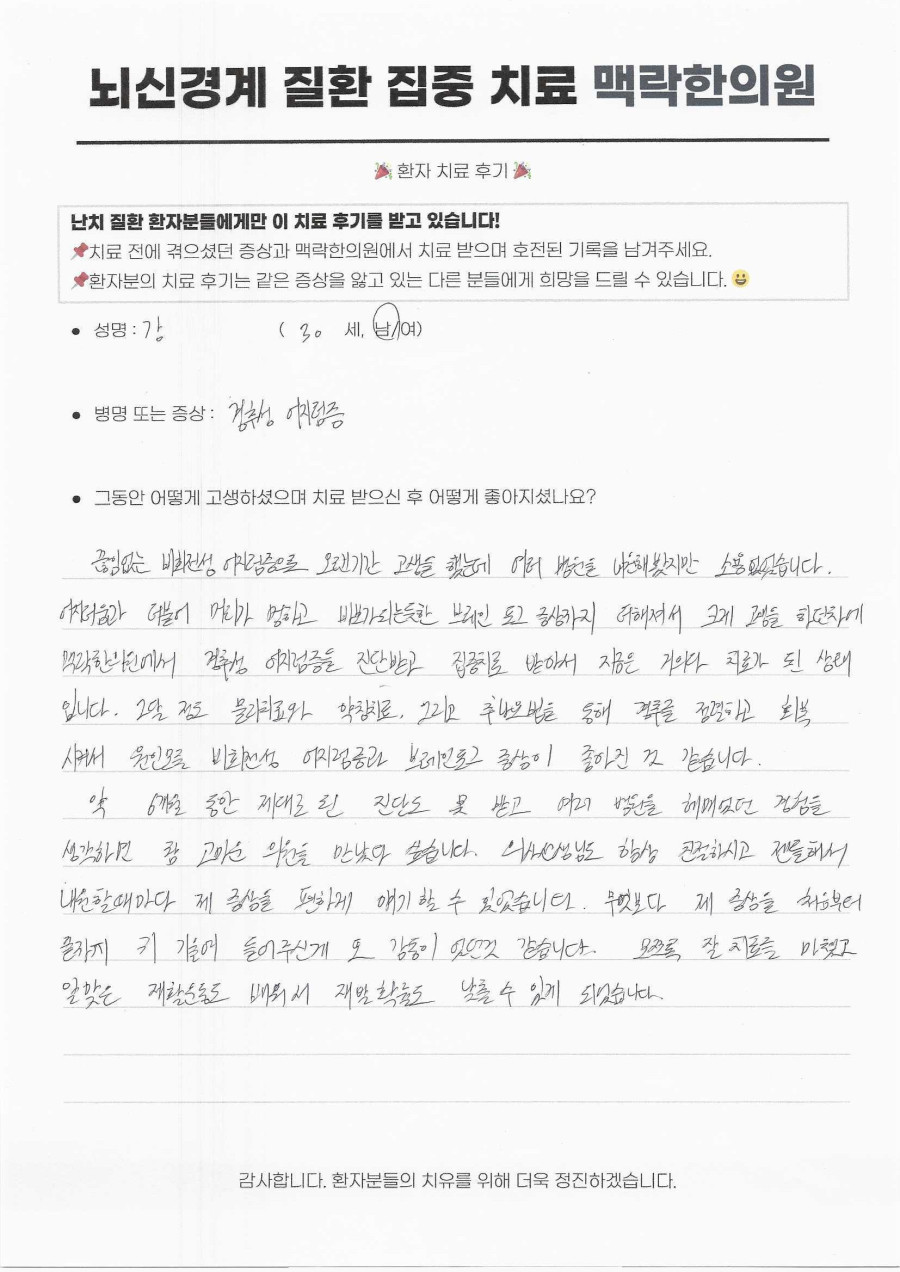 뇌신경계 질환 집중 치료 맥락한의원
환자 치료 후기
난치 질환 환자분들에게만 이 치료 후기를 받고 있습니다!
치료 전에 겪으셨던 증상과 맥락한의원에서 치료 받으며 호전된 기록을 남겨주세요.
환자분의 치료 후기는 같은 증상을 앓고 있는 다른 분들에게 희망을 드릴 수 있습니다.
• 성명 : 강 ( 30 세, 남/여)
• 병명 또는 증상 : 경추성 어지럼증
• 그동안 어떻게 고생하셨으며 치료 받으신 후 어떻게 좋아지셨나요?
끊임없는 비회전성 어지럼증으로 오랜기간 고생을 했는데 여러 병원을 내원해봤지만 소용없었습니다.
어지러움과 더불어 머리가 멍하고 바보가되는듯한 브레인 포그 증상까지 더해져서 크게 고생을 하던차에
맥락한의원에서 경추성 어지럼증을 진단받고 집중치료 받아서 지금은 거의다 치료가 된 상태
입니다. 2달 정도 물리치료와 약침치료, 그리고 추나요법을 통해 경추를 점검하고 회복
시켜서 원인모를 비회전성 어지럼증과 브레인포그 증상이 좋아진 것 같습니다.
약 6개월 동안 제대로 된 진단도 못 받고 여러 병원을 헤매었던 경험을
생각하면 참 고마운 의원을 만났다 싶습니다. 의사선생님도 항상 친절하시고
내원할때마다 제 증상을 편하게 얘기할 수 있었습니다. 무엇보다 제 증상을 처음부터
끝까지 귀 기울여 들어주신게 또 감동이 었던것 같습니다. 모쪼록 잘 치료를 마쳤고
알맞은 재활운동도 배워서 재발확률도 낮출 수 있게 되었습니다.
감사합니다. 환자분들의 치유를 위해 더욱 정진하겠습니다.